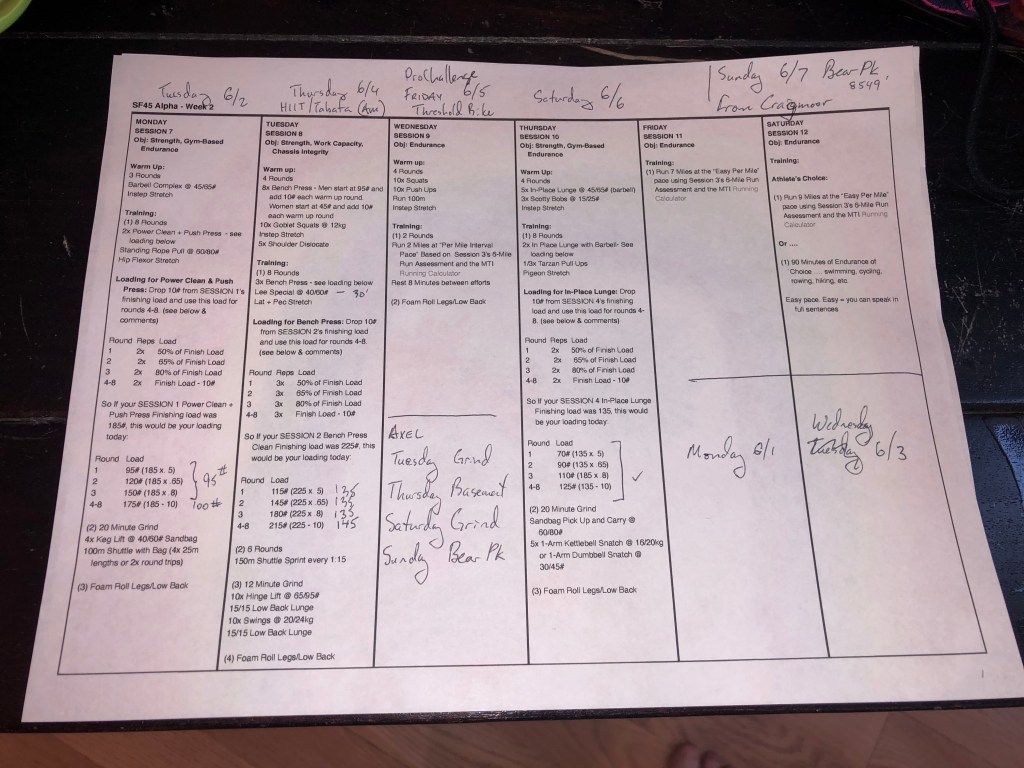 Tuesday 6/2
Thursday 6/4
HIIT/Tabata (Am)
ProChallenge
FRIDAY 6/5
Threshold Bike
Saturday 6/6
Sunday 6/7 Bear Pk,
8549
from Cragmoor
SF45 Alpha - Week 2
MONDAY
SESSION 7
Obj: Strength, Gym-Based
Endurance
Warm Up:
3 Rounds
Barbell Complex @ 45/65#
Instep Stretch
Training:
(1) 8 Rounds
2x Power Clean + Push Press - see
loading below
Standing Rope Pull @ 60/80#
Hip Flexor Stretch
Loading for Power Clean & Push
Press: Drop 10# from SESSION 1's
finishing load and use this load for
rounds 4-8. (see below &
comments)
Round Reps Load
1 2x 50% of Finish Load
2 2x 65% of Finish Load
3 2x 80% of Finish Load
4-8 2x Finish Load - 10#
So if your SESSION 1 Power Clean +
Push Press Finishing load was
185#, this would be your loading
today:
Round Load
1 95# (185 x .5)
2 120# (185 x .65)
3 150# (185 x .8)
4-8 175# (185 - 10)
95#
100#
(2) 20 Minute Grind
4x Keg Lift @ 40/60# Sandbag
100m Shuttle with Bag (4x 25m
lengths or 2x round trips)
(3) Foam Roll Legs/Low Back
TUESDAY
SESSION 8
Obj: Strength, Work Capacity,
Chassis Integrity
Warm up:
4 Rounds
8x Bench Press - Men start at 95# and
add 10# each warm up round
Women start at 45# and add 10#
each warm up round
10x Goblet Squats @ 12kg
Instep Stretch
5x Shoulder Dislocate
Training:
(1) 8 Rounds
3x Bench Press - see loading below
Lee Special @ 40/60# — 30'
Lat + Pec Stretch
Loading for Bench Press: Drop 10#
from SESSION 2's finishing load
and use this load for rounds 4-8.
(see below & comments)
Round Reps Load
1 3x 50% of Finish Load
2 3x 65% of Finish Load
3 3x 80% of Finish Load
4-8 3x Finish Load - 10#
So if your SESSION 2 Bench Press
Clean Finishing load was 225#, this
would be your loading today:
Round Load
1 115# (225 x .5) 135
2 145# (225 x .65) 135
3 180# (225 x .8) 135
4-8 215# (225 - 10) 145
(2) 6 Rounds
150m Shuttle Sprint every 1:15
(3) 12 Minute Grind
10x Hinge Lift @ 65/95#
15/15 Low Back Lunge
10x Swings @ 20/24kg
15/15 Low Back Lunge
(4) Foam Roll Legs/Low Back
WEDNESDAY
SESSION 9
Obj: Endurance
Warm up:
4 Rounds
10x Squats
10x Push Ups
Run 100m
Instep Stretch
Training:
(1) 2 Rounds
Run 2 Miles at "Per Mile Interval
Pace" Based on Session 3's 6-Mile
Run Assessment and the MTI
Running Calculator
Rest 8 Minutes between efforts
(2) Foam Roll Legs/Low Back
AXEL
Tuesday Grind
Thursday Basement
Saturday Grind
Sunday Bear Pk
THURSDAY
SESSION 10
Obj: Strength, Gym-Based
Endurance
Warm Up:
4 Rounds
5x In-Place Lunge @ 45/65# (barbell)
3x Scotty Bobs @ 15/25#
Instep Stretch
Training:
(1) 8 Rounds
2x In Place Lunge with Barbell- See
loading below
1/3x Tarzan Pull Ups
Pigeon Stretch
Loading for In-Place Lunge: Drop
10# from SESSION 4's finishing
load and use this load for rounds 4-
8. (see below & comments)
Round Reps Load
1 2x 50% of Finish Load
2 2x 65% of Finish Load
3 2x 80% of Finish Load
4-8 2x Finish Load - 10#
So if your SESSION 4 In-Place Lunge
Finishing load was 135, this would
be your loading today:
Round Load
1 70# (135 x .5)
2 90# (135 x .65)
3 110# (185 x .8)
4-8 125# (135 - 10)
(2) 20 Minute Grind
Sandbag Pick Up and Carry @
60/80#
5x 1-Arm Kettlebell Snatch @ 16/20kg
or 1-Arm Dumbbell Snatch @
30/45#
(3) Foam Roll Legs/Low Back
FRIDAY
SESSION 11
Obj: Endurance
Training:
(1) Run 7 Miles at the "Easy Per Mile"
pace using Session 3's 6-Mile Run
Assessment and the MTI Running
Calculator
Monday 6/1
SATURDAY
SESSION 12
Obj: Endurance
Training:
Athlete's Choice:
(1) Run 9 Miles at the "Easy Per Mile"
pace using Session 3's 6-Mile Run
Assessment and the MTI Running
Calculator
Or ....
(1) 90 Minutes of Endurance of
Choice .... swimming, cycling,
rowing, hiking, etc.
Easy pace. Easy = you can speak in
full sentences
Wednesday
Tuesday 6/3
1